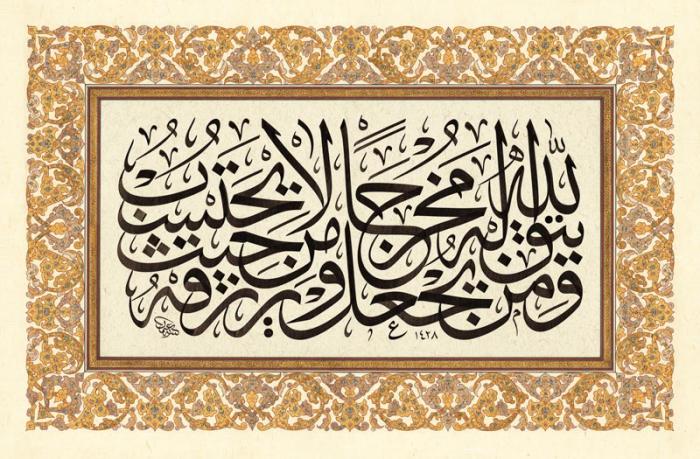 ومن يتق الله يجعل له مخرجا ويرزقه من حيث لا يحتسب
١٤٢٨